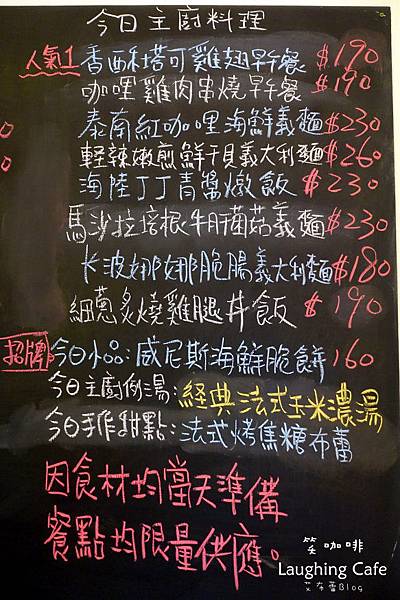 今日主廚料理
人氣1 香酥塔可雞翅早午餐 $190
咖哩雞肉串燒早午餐 $190
泰南紅咖哩海鮮義麵 $230
輕辣嫩煎鮮干貝義大利麵 $260
海陸丁丁青醬燉飯 $230
馬沙拉培根牛肝菌菇義麵 $230
卡波娜娜脆腸義大利麵 $180
細蔥炙燒雞腿丼飯 $190
招牌 今日小品:威尼斯海鮮脆餅 160
今日主廚例湯:經典法式玉米濃湯
今日手作甜點:法式烤焦糖布蕾
因食材均當天準備
餐點均限量供應。
笑咖啡
Laughing Cafe
艾布蕾Blog